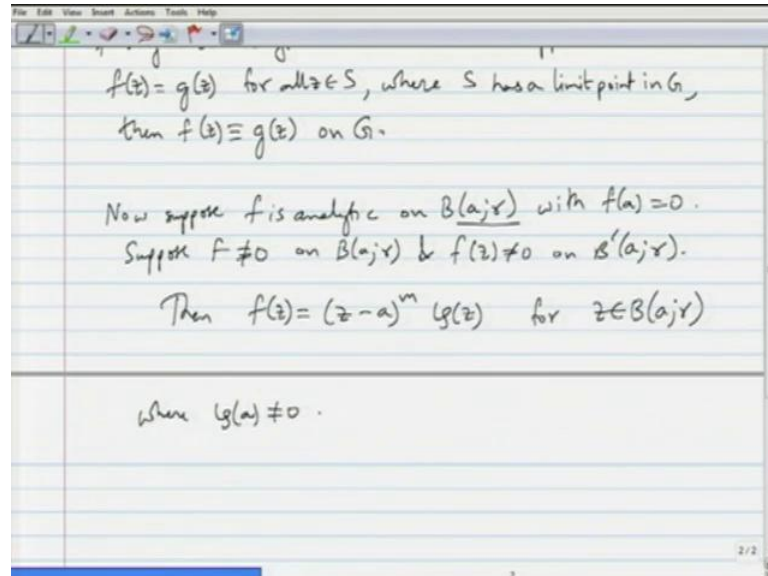 File Edit View Insert Actions Tools Help
f(z) = g(z) for all z ∈ S, where S has a limit point in G,
then f(z) ≡ g(z) on G.
Now suppose f is analytic on B(a;r) with f(a) = 0.
Suppose f ≢ 0 on B(a;r) & f(z) ≠ 0 on B'(a;r).
Then f(z) = (z-a)^m φ(z) for z ∈ B(a;r)
where φ(a) ≠ 0.
2/2